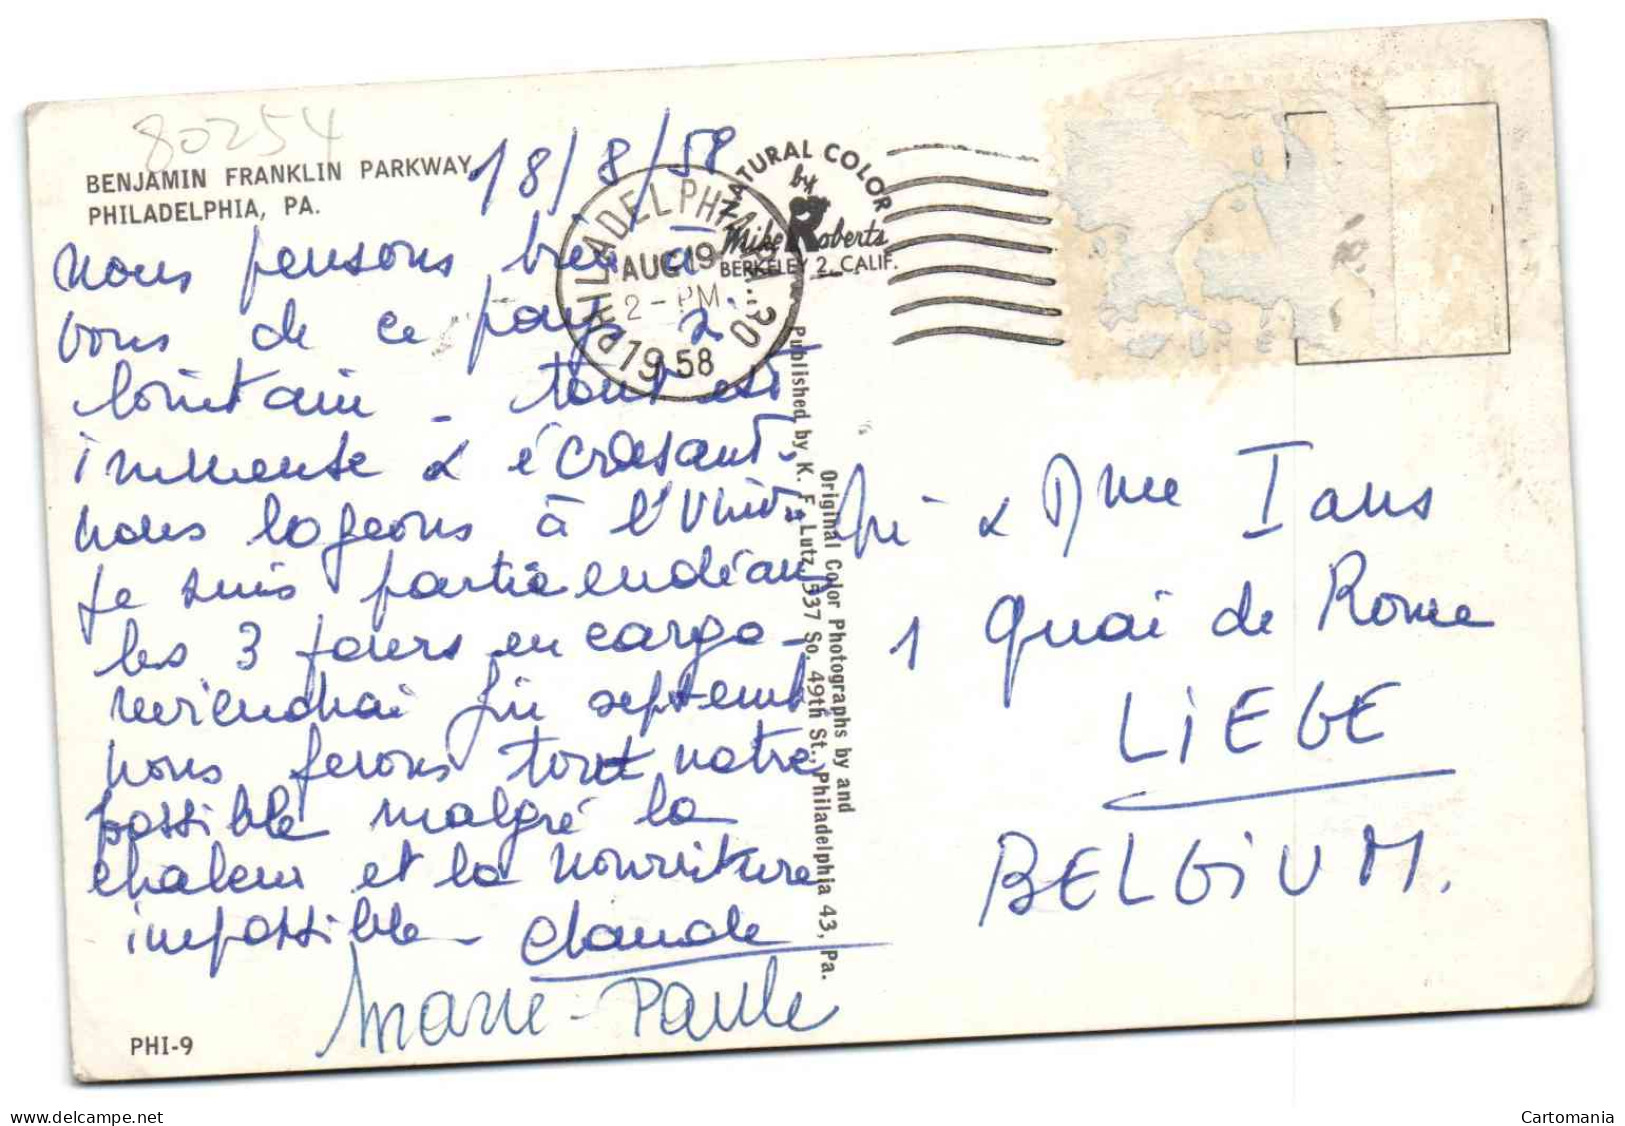 80254
BENJAMIN FRANKLIN PARKWAY,
PHILADELPHIA, PA.
18/8/58
nous pensons bien à
vous de ce pays si
lointain - tout est
immense & écrasant.
nous logeons à l'Univ.
Je suis partie
les 3 jours en cargo -
reviendrai fin septemb
nous ferons tout notre
possible malgré la
chaleur et la nourriture
impossible - Claude
Marie-Paule
PHI-9
PHILADELPHIA, PA. 30
AUG 19
2 - PM
1958
NATURAL COLOR
by
Mike Roberts
BERKELEY 2, CALIF.
Published by K. F. Lutz, 537 So. 49th St., Philadelphia 43, Pa.
Original Color Photographs by and
& Mme Jans
1 Quai de Rome
LIEGE
BELGIUM.
Cartomania